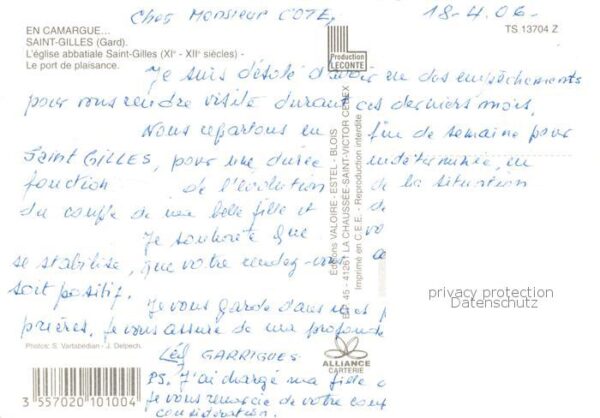 Cher Monsieur COTE,
18-4.06.
EN CAMARGUE...
SAINT-GILLES (Gard).
L'église abbatiale Saint-Gilles (XIe - XIIe siècles) -
Le port de plaisance.
Production
LECONTE
TS 13704 Z
Je suis désolé d'avoir eu des empêchements
pour vous rendre visite durant ces derniers mois.
Nous repartons en fin de semaine pour
Saint GILLES, pour une durée indéterminée, en
fonction de l'évolution de la situation
du couple de ma belle fille et de
Je souhaite que vo
se stabilise, que votre rendez-vous
soit positif.
Je vous garde dans mes p
prières. Je vous assure de ma profonde
Léo GARRIGUES
PS. J'ai chargé ma fille
Je vous remercie de votre
considération.
Editions VALOIRE - ESTEL - BLOIS
B.P. 45 - 41261 LA CHAUSSÉE-SAINT-VICTOR CEDEX
Imprimé en C.E.E. - Reproduction interdite
privacy protection
Datenschutz
Photos: S. Vartabédian - J. Delpech.
ALLIANCE
CARTERIE
3 557020 101004